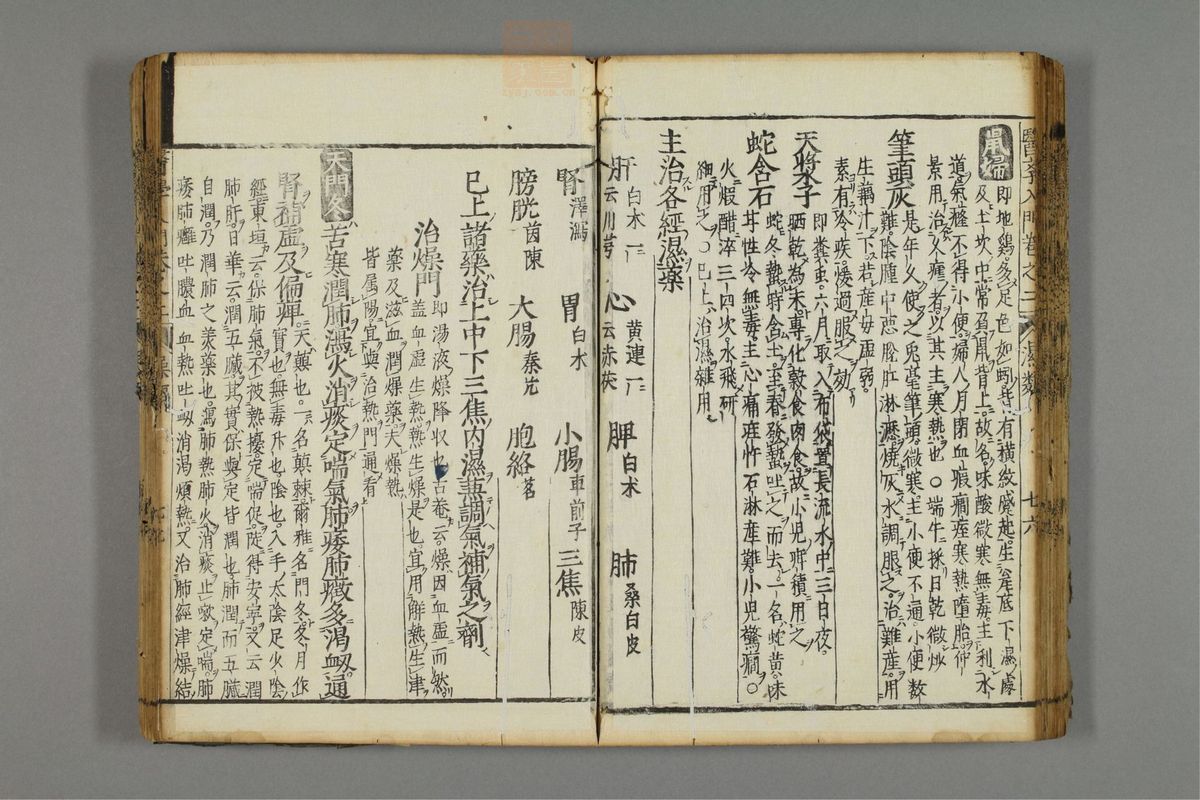 醫學入門卷之二 濕類 七六
鼠婦
即地雞多足色如蚓背有橫紋蹙起生瓮底下濕處
及土坎中常負鼠背上故名味酸微寒無毒主利水
道氣癃不得小便婦人月閉血瘕癇痓寒熱墮胎仲
景用治久瘧者以其主寒熱也○端午採日乾微炒
筆頭灰
是年久使乏兎毫筆頭微寒主小便不通小便數
難陰腫中惡脫肛淋瀝燒灰水調服之治難産用
生藕汁下若産母虛弱
素有冷疾煖過服之効
天漿子
即糞虫六月取入布袋置長流水中三日夜
晒乾為末專化穀食肉食故小兒疳積用之
蛇含石
蛇冬蟄時含土至春發蟄吐之而去一名蛇黃味
甘性冷無毒主心痛疰忤石淋産難小兒驚癇○
火煆醋淬三四次水飛研
細用之○已上治濕雜用
主治各經濕藥
肝 白朮 云川芎 心 黃連 云赤茯 脾 白朮 肺 桑白皮
腎 澤瀉 胃 白朮 小腸 車前子 三焦 陳皮
膀胱 茵陳 大腸 秦艽 胞絡 茗
已上諸藥治上中下三焦內濕熏調氣補氣之劑
治燥門
即湯液燥降收也古卷云燥因血虛而然
蓋血虛生熱熱生燥是也宜用解熱生津
藥及滋血潤燥藥大燥熱
皆屬陽宜與治熱門通看
天門冬
苦寒潤肺瀉火消痰定喘氣肺痿肺癥多渴衂通
腎補虛及偏痺
天顛也一名顛棘爾雅名門冬冬月作
實也無毒升也陰也入手太陰足少陰
經東垣云保肺氣不被熱擾定喘促陡得安寧又云潤
肺肝日華云潤五臟其實保與定皆潤也肺潤而五臟
自潤乃潤肺之美藥也瀉肺熱肺火消痰止嗽定喘肺
痿肺癰吐膿血血熱吐衂消渴煩熱又治肺經津燥結